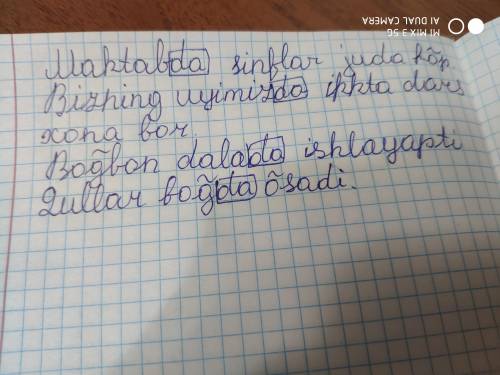 Maktabda sinflar juda kõp
Bizning uyimizda ikkta dars
xona bor.
Boğbon dalada ishlayapti
Gullar boğda õsadi.
MI MIX 3 5G
AI DUAL CAMERA